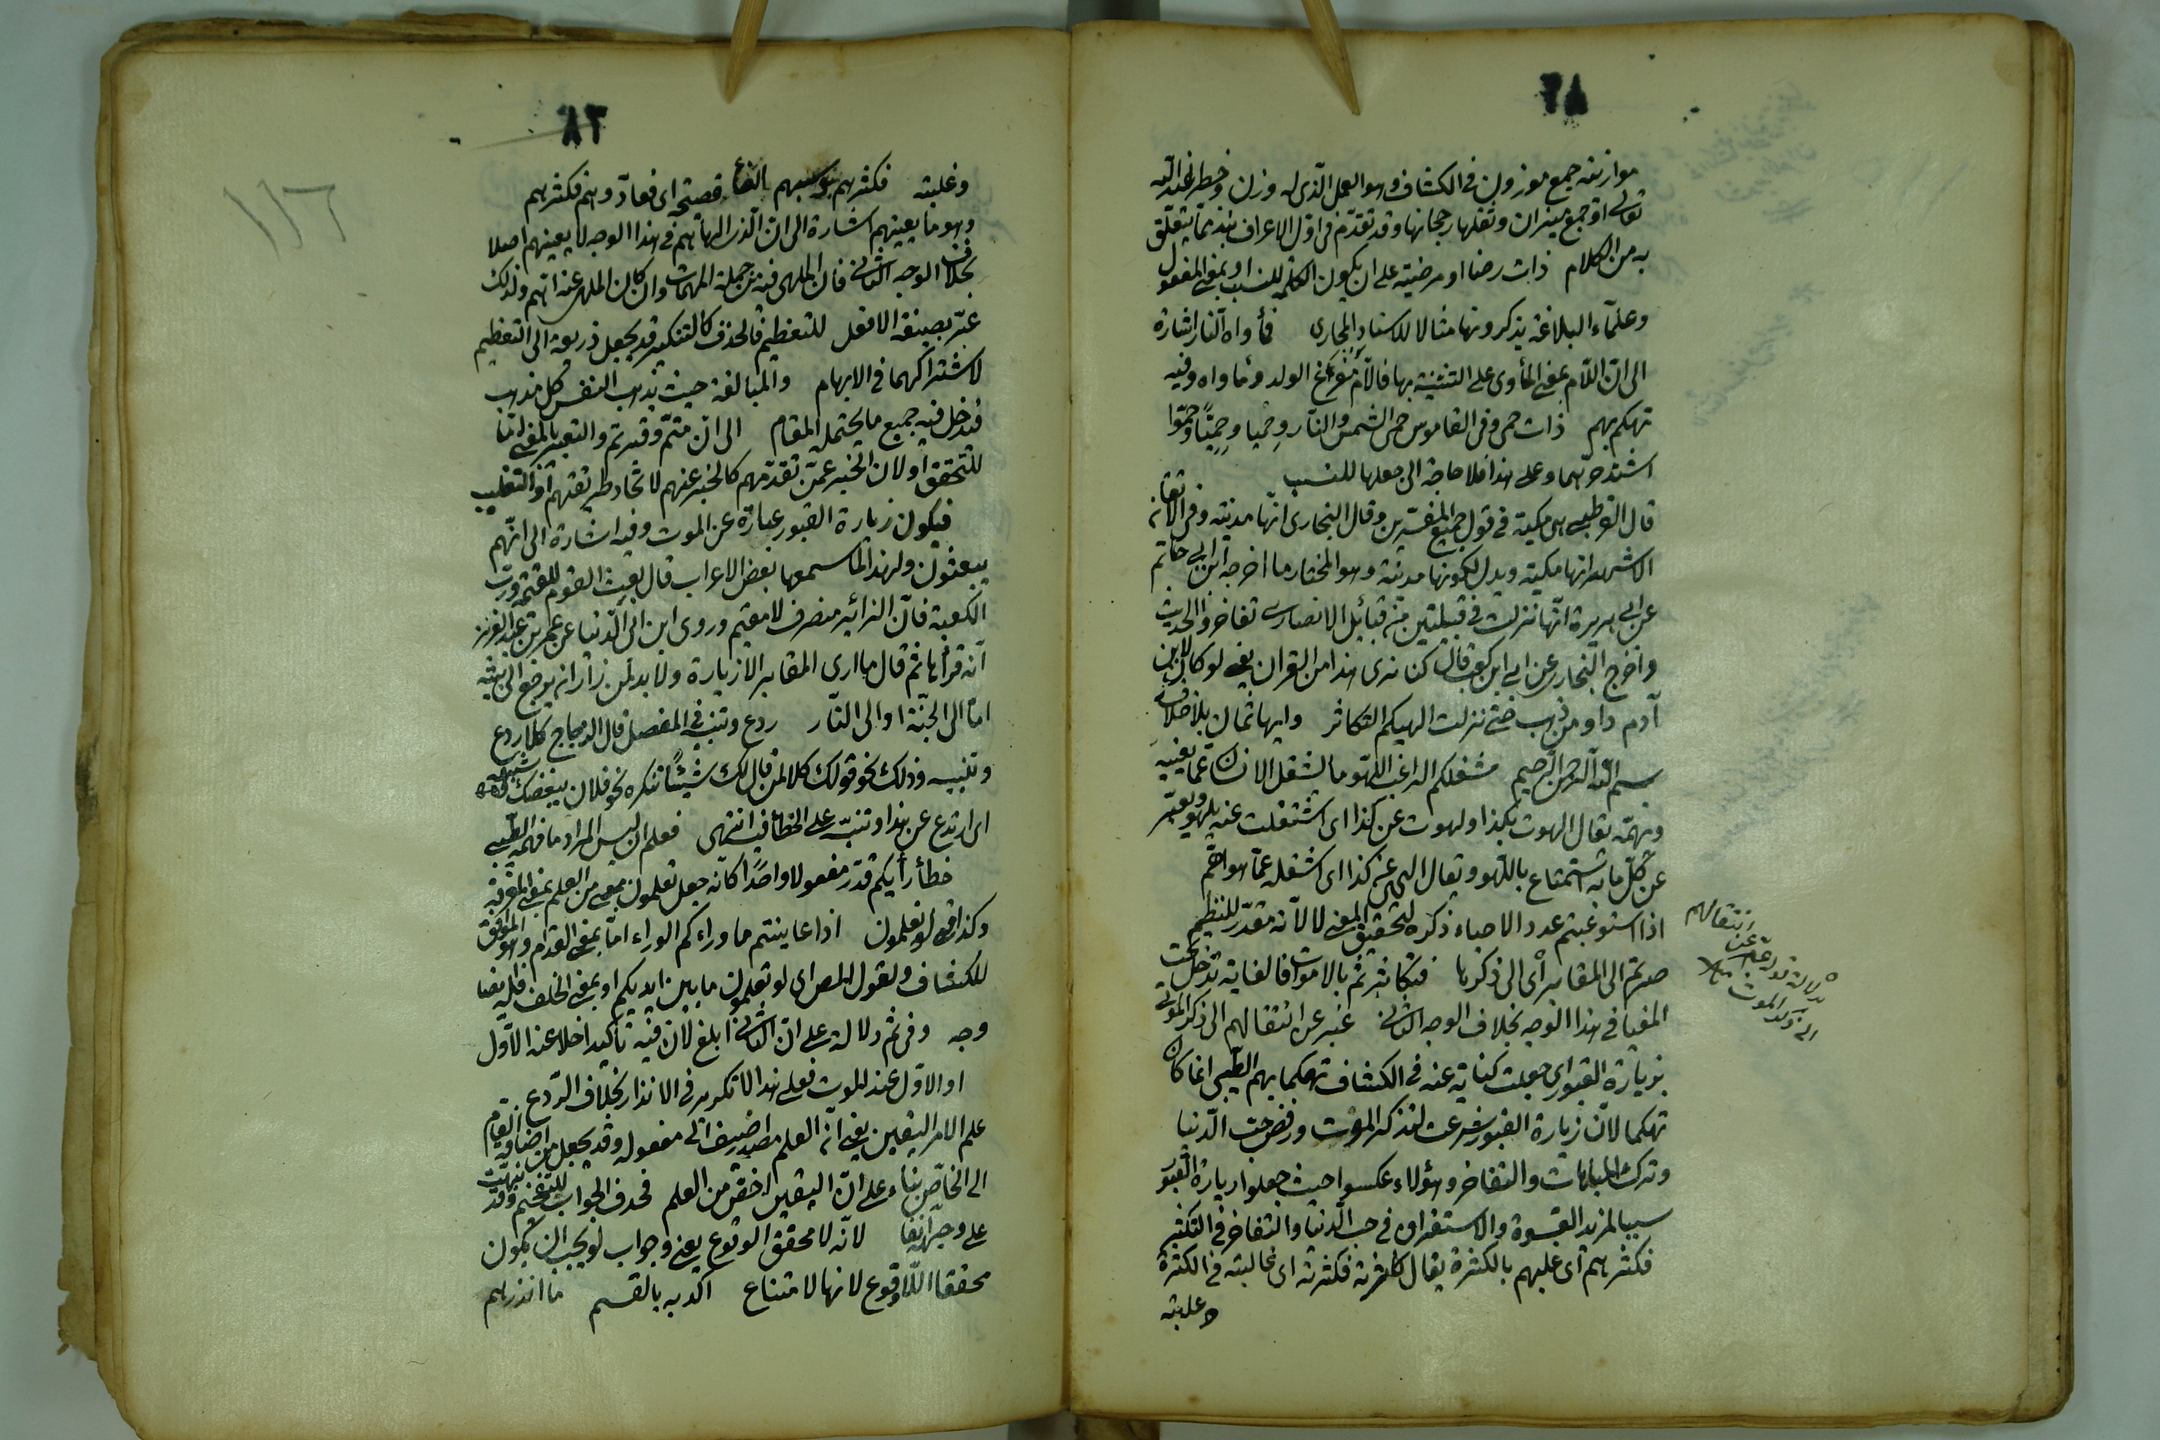 ٨٢
موازينه جمع موزون فى الكشاف وهو العمل الذى له وزن وخطر عند الله
تعالى او جمع ميزان وثقلها رجحانها وقد تقدّم فى اول الاعراف نبذ مما يتعلق
به من الكلام ذات رضا او مرضية على ان يكون الكلمة للنسب او بمعنى المفعول
وعلمآء البلاغة يذكرونها مثالا للاسناد المجازى فمأواه النار اشارة
الى ان اللام بمعنى المأوى على التشبيه بها فالام مفزع الولد ومأواه وفيه
تهكم بهم ذات حمى وفى القاموس حمى الشمس والنار وحميا وحميّا وحموّا
اشتد حرهما وعلى هذا فلا حاجة الى جعلها للنسب
قال القرطبى هى مكية فى قول جميع المفسرين وقال البخارى انها مدنية وفى الاتقان
الاشهر انها مكية ويدل لكونها مدنية وهو المختار ما اخرجه ابن ابى حاتم
عن ابى بريدة انها نزلت فى قبيلتين من قبائل الانصار تفاخروا الحديث
واخرج البخارى عن ابى ابن كعب قال كنا نرى هذا من القران يعنى لو كان لابن
آدم واد من ذهب حتى نزلت الهيكم التكاثر وايها ثمان بلا خلاف
بسم الله الرحمن الرحيم شغلكم الراغب اللهو ما يشغل الانسان عما يعنيه
ويهمّه يقال الهوت بكذا ولهوت عن كذا اى اشتغلت عنه بلهو ويعبر
عن كل ما به استمتاع باللهو ويقال الهى عن كذا اى اشغله عما هو اهم
اذا استوعبتم عدد الاحياء ذكره لتحقيق المعنى لا لانه مقدّر للنظم
صرتم الى المقابر اى الى ذكرها فتكاثرتم بالاموات فالغاية تدخل تحت
المغيا فى هذا الوجه بخلاف الوجه الثانى عبّر عن انتقالهم الى ذكر الموتى
بزيارة القبور اى جعلت كناية عنه فى الكشاف تهكما بهم الطيبى انما كان
تهكما لان زيارة القبور شرعت لتذكر الموت ورفض حب الدنيا
وترك المباهات والتفاخر وهؤلاء عكسوا حيث جعلوا زيارة القبور
سببا لمزيد القسوة والاستغراق فى حب الدنيا والتفاخر فى التكثير
فكثرهم اى غلبهم بالكثرة يقال كاثرته فكثرته اى غالبته فى الكثرة
وغلبته
انتقالهم
عن
الى ذكر الموت
٨٣
١١٦
وغلبته فكثرهم بنو سهم الفاء فصيحة اى فعادّوهم فكثرهم
وهو ما يعنيهم اشارة الى ان الذى الهاهم فى هذا الوجه لا يعنيهم اصلا
بخلاف الوجه الثانى فان الملهى فيه من جملة المهمات وان كان الملهى عنه اهم ولذلك
عبّر بصيغة الافعل للتعظيم فالحذف كالتنكير قد يجعل ذريعة الى التعظيم
لاشتراكهما فى الابهام والمبالغة حيث يذهب النفس كل مذهب
فيدخل فيه جميع ما يحتمله المقام الى ان متّم وقبرتم والتعبير بالمضى امّا
للتحقق او لان الخبر عمّن تقدمهم كالخبر عنهم لاتحاد طريقتهم او التغليب
فيكون زيارة القبور عبارة عن الموت وفيه اشارة الى انهم
يبعثون ولهذا لما سمعها بعض الاعراب قال بعث القوم للقيمة ورب
الكعبة فان الزائر منصرف لا مقيم وروى ابن ابى الدنيا عن عمر بن عبد العزيز
انه قرأها ثم قال ما ارى المقابر الا زيارة ولا بد لمن زار ان يرجع الى بيته
امّا الى الجنّة او الى النار ردع وتنبيه فى المفصل قال الزجاج كلا ردع
وتنبيه وذلك نحو قولك كلا لمن قال لك شيئًا تنكره نحو فلان يبغضك وشبهه
اى ارتدع عن هذا وتنبّه على الخطأ فيه انتهى فعلم ان ليس المراد ما فهمه الطيبى
خطأ رأيكم قدر مفعولا واحدًا كانه جعل تعلمون بمعنى من العلم بمعنى المعرفة
وكذا فى لو تعلمون اذا عاينتم ما وراءكم الوراء امّا بمعنى القدام وهو الموافق
للكشاف ولقول المص اى لو تعلمون ما بين ايديكم او بمعنى الخلف فله ايضا
وجه وفى ثم دلالة على انّ الثانى ابلغ لان فيه تأكيدا خلا عنه الاول
او الاول عند الموت فعلى هذا لا تكرير فى الانذار بخلاف الردع
علم الامر اليقين يعنى ان العلم مصدر اضيف الى مفعوله وقد يجعل من اضافة العام
الى الخاص بناء على ان اليقين اخص من العلم فحذف الجواب للتفخيم وقد نبهت
على وجهه آنفا لانه لا محقق الوقوع يعنى وجواب لو يجب ان يكون
محققا اللاوقوع لانها لامتناع اكد به بالقسم ما انذرهم